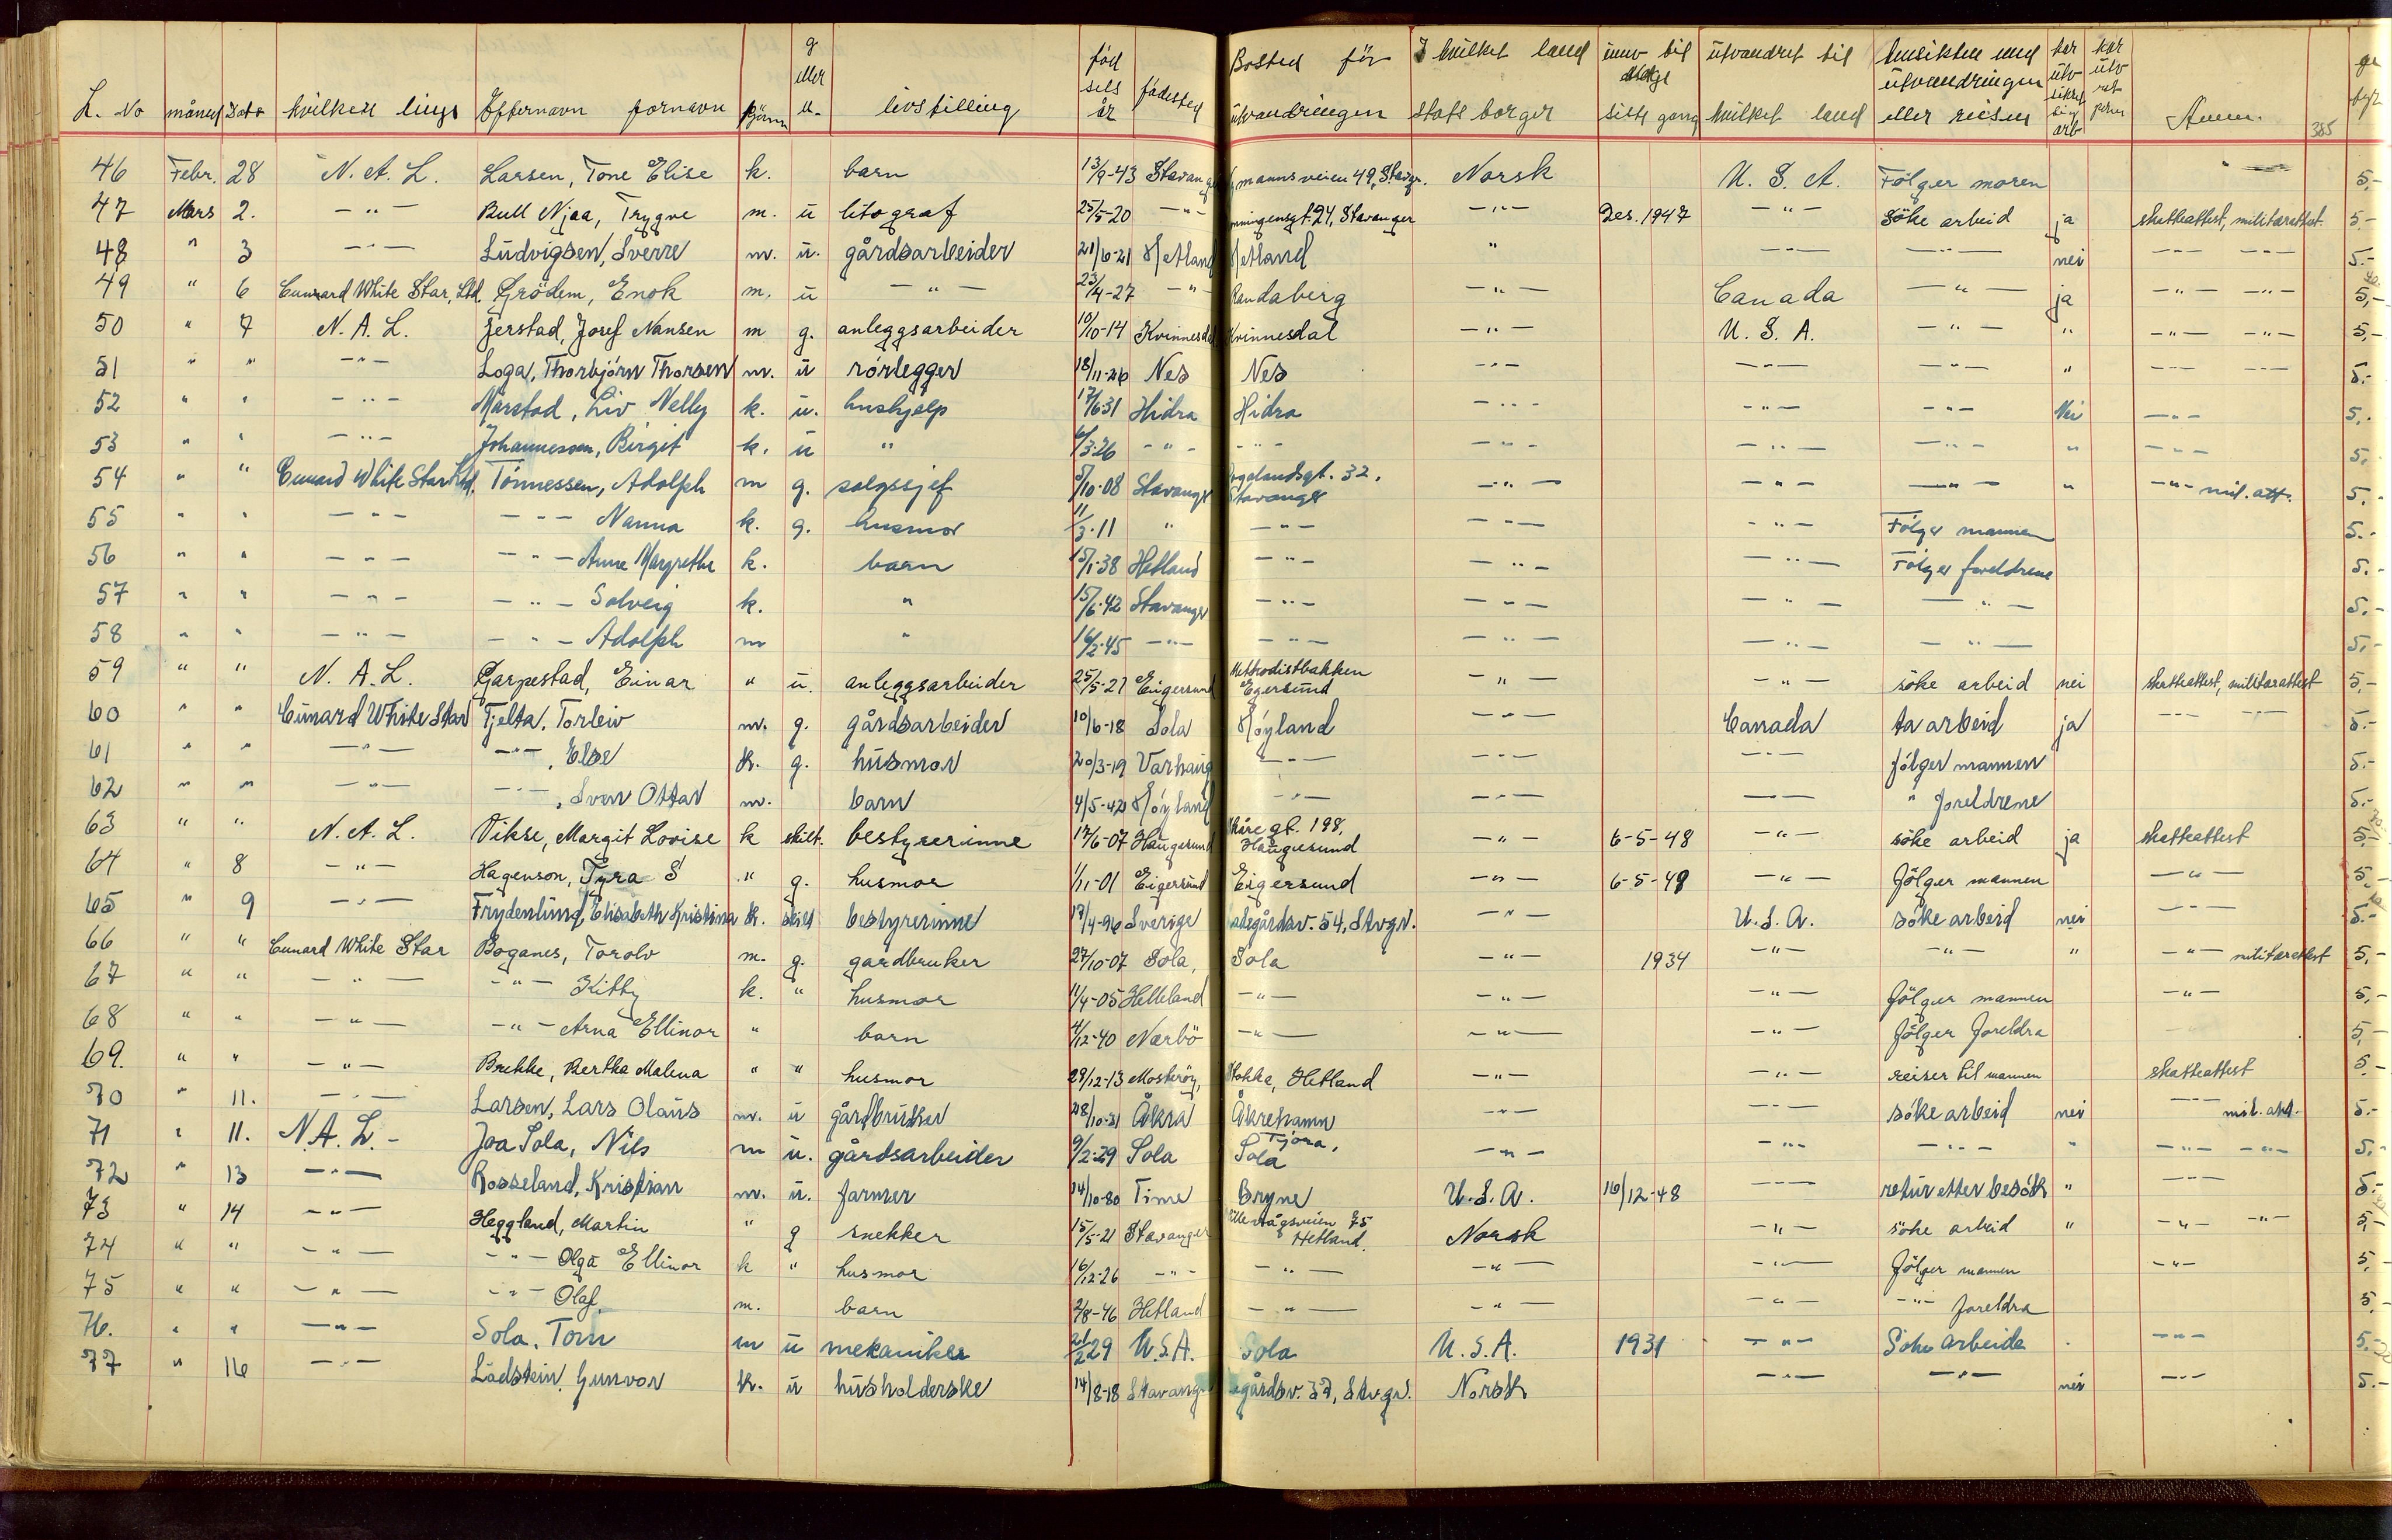 L. No måned Dato hvilken linje Efternavn fornavn kjønn g eller u. livstilling fød sels år fødested Bosted før utvandringen I hvilket land stats borger innv til Norge siste gang utvandret til hvilket land hensikten med utvandringen eller reisen har utv sikret sig arb har utv ret Anm. 385
46 Febr. 28 N. A. L. Larsen, Tone Elise k. barn 13/9-43 Stavanger mannsveien 49, Stavgr. Norsk U. S. A. Følger moren - " -
47 Mars 2. - " - Bull Njaa, Trygve m. u litograf 25/5-20 - " - ningensgt. 24, Stavanger - " - Des. 1947 - " - Søke arbeid ja skatteattest, militærattest. 5.-
48 " 3 - " - Ludvigsen, Sverre m. u. gårdsarbeider 21/6-21 Hetland Hetland " - " - - " - nei - " - - " - 5.-
49 " 6 Cunnard White Star, Ltd. Grödem, Enok m. u - " - 23/4-27 - " - Randaberg - " - Canada - " - ja - " - - " - 5,-
50 " 7 N. A. L. Jerstad, Josef Nansen m g. anleggsarbeider 10/10-14 Kvinnesdal Kvinnesdal - " - U. S. A. - " - " - " - - " - 5,-
51 " " - " - Loga, Thorbjörn Thorsen m. u rörlegger 18/11-26 Nes Nes - " - - " - - " - " - " - - " - 5.-
52 " " - " - Marstad, Liv Nelly k. u. hushjelp 17/6 31 Hidra Hidra - " - - " - - " - Nei - " - 5,-
53 " " - " - Johannessen, Birgit k. u " 6/3-26 - " - - " - - " - - " - - " - " - " - 5,
54 " " Cunard White Star Ltd. Tönnessen, Adolph m g. salgssjef 5/10-08 Stavanger Rogalandsgt. 32, Stavanger - " - - " - - " - " - " - mil. att. 5,-
55 " " - " - - " - Nanna k. g. husmor 11/3-11 " - " - - " - - " - Følger mannen 5.-
56 " " - " - - " - Anne Margrethe k. barn 15/1-38 Hetland - " - - " - - " - Følger foreldrene 5.-
57 " " - " - - " - Solveig k. " 15/6-42 Stavanger - " - - " - - " - - " - 5.-
58 " " - " - - " - Adolph m " 16/2-45 - " - - " - - " - - " - - " - 5,-
59 " " N. A. L. Garpestad, Einar " u. anleggsarbeider 25/5-27 Eigersund Methodistbakken Egersund - " - - " - söke arbeid nei skatteattest, militærattest 5,-
60 " " Cunard White Star Tjelta, Torleiv m. g. gårdsarbeider 10/6-18 Sola Høyland - " - Canada ta arbeid ja - " - - " - 5.-
61 " " - " - - " -, Else k. g. husmor 20/3-19 Varhaug - " - - " - - " - følger mannen 5.-
62 " " - " - - " -, Sven Ottar m. barn 4/5-42 Høyland - " - - " - - " - " foreldrene 5.-
63 " " N. A. L. Vikse, Margit Lovise k skilt. bestyrerinne 17/6-07 Haugesund Skåre gt. 198, Haugesund - " - 6-5-48 - " - söke arbeid ja skatteattest 5,-
64 " 8 - " - Hagenson, Tyra S " g. husmor 1/11-01 Eigersund Eigersund - " - 6-5-48 - " - følger mannen - " - 5,-
65 " 9 - " - Frydenlund, Elisabeth Kristina k. skilt bestyrerinne 17/4-96 Sverige ladegårdsv. 54, Stvgr. - " - U. S. A. söke arbeid nei - " - 5.-
66 " " Cunard White Star Boganes, Torolv m. g. gardbruker 27/10-07 Sola, Sola - " - 1934 - " - - " - " - " - militærattest 5,-
67 " " - " - - " - Kitty k. " husmor 11/4-05 Helleland - " - - " - - " - følger mannen - " - 5,-
68 " " - " - - " - Arna Ellinor " barn 4/12-40 Nærbö - " - - " - - " - følger foreldra 5,-
69. " " - " - Brekke, Bertha Malena " " husmor 29/12-13 Mosteröy, Stokka, Hetland - " - - " - reiser til mannen skatteattest 5.-
70 " 11. - " - Larsen, Lars Olaus m. u gårdbruker 28/10-21 Åkra Åkrehamn - " - - " - söke arbeid nei - " - mil. att. 5.-
71 " 11. N. A. L. - Joa Sola, Nils m u. gårdsarbeider 9/2-29 Sola Tjora, Sola - " - - " - - " - " - " - - " - 5.-
72 " 13 - " - Rosseland, Kristian m. u. farmer 14/10-80 Time Bryne U. S. A. 16/12-48 - " - retur etter besøk " - " - 5.-
73 " 14 - " - Heggland, Martin " g snekker 15/5-21 Stavanger 75 Hetland. Norsk - " - söke arbeid " - " - - " - 5,-
74 " " - " - - " - Olga Ellinor k " husmor 16/12-26 - " - - " - - " - - " - følger mannen - " - 5,-
75 " " - " - - " - Olaf. m. barn 2/8-46 Hetland - " - - " - - " - - " - foreldra 5,-
76. " " - " - Sola, Tom m u mekaniker 26/2 29 U.S.A. Sola U. S. A. 1931 - " - Söke arbeide - " - 5.-
77 " 16 - " - Ladstein, Gunvor k. u husholderske 14/8-18 Stavanger gårdsv. 37, Stvgr. Norsk - " - - " - nei - " - 5.-